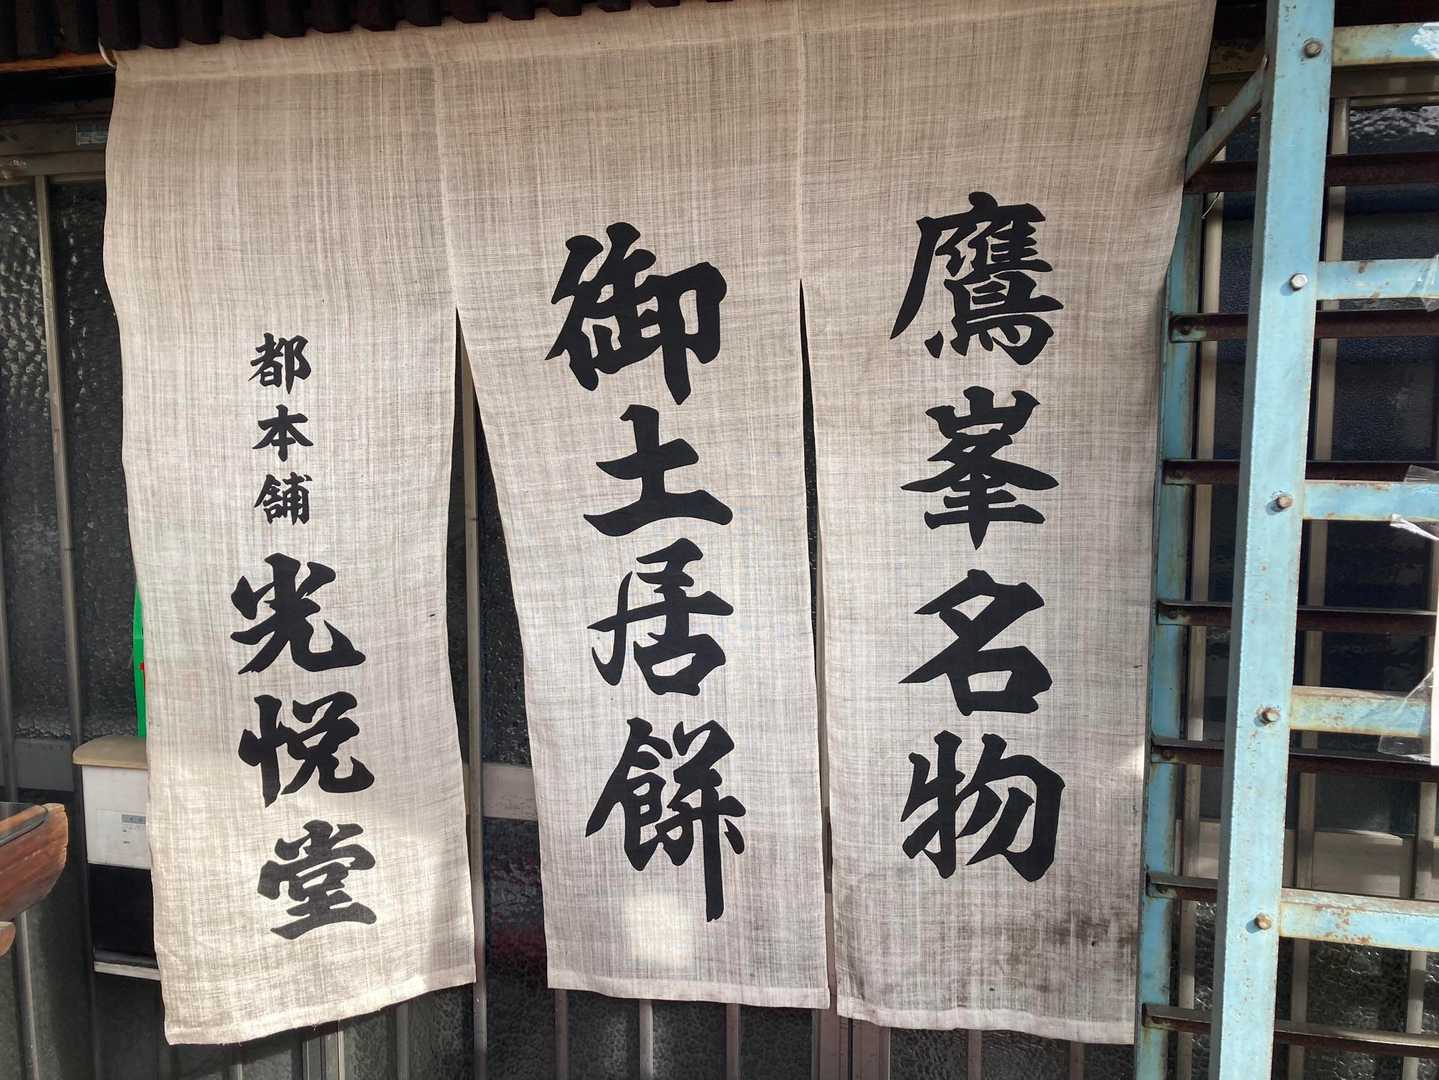 鷹峯名物
御土居餅
都本舗光悦堂